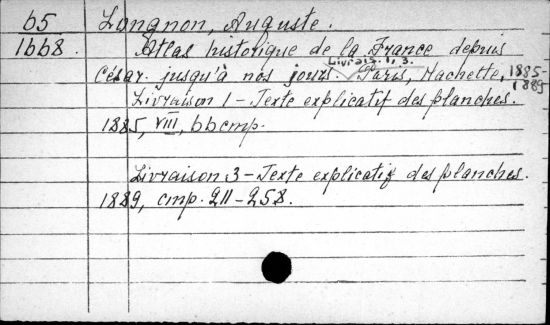 65 Longnon, Auguste.
1668. Atlas historique de la France depuis
Livrais. 1, 3.
César jusqu'à nos jours. Paris, Hachette, 1885-1889
Livraison 1 – Texte explicatif des planches.
1885, VIII, 66 стр.
Livraison 3 – Texte explicatif des planches.
1889, стр. 211–258.